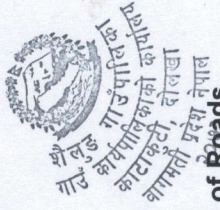 शैलुङ गाउँपालिका
गाउँ कार्यपालिकाको कार्यालय
काटाकुटी, दोलखा
बागमती प्रदेश नेपाल
of Roads